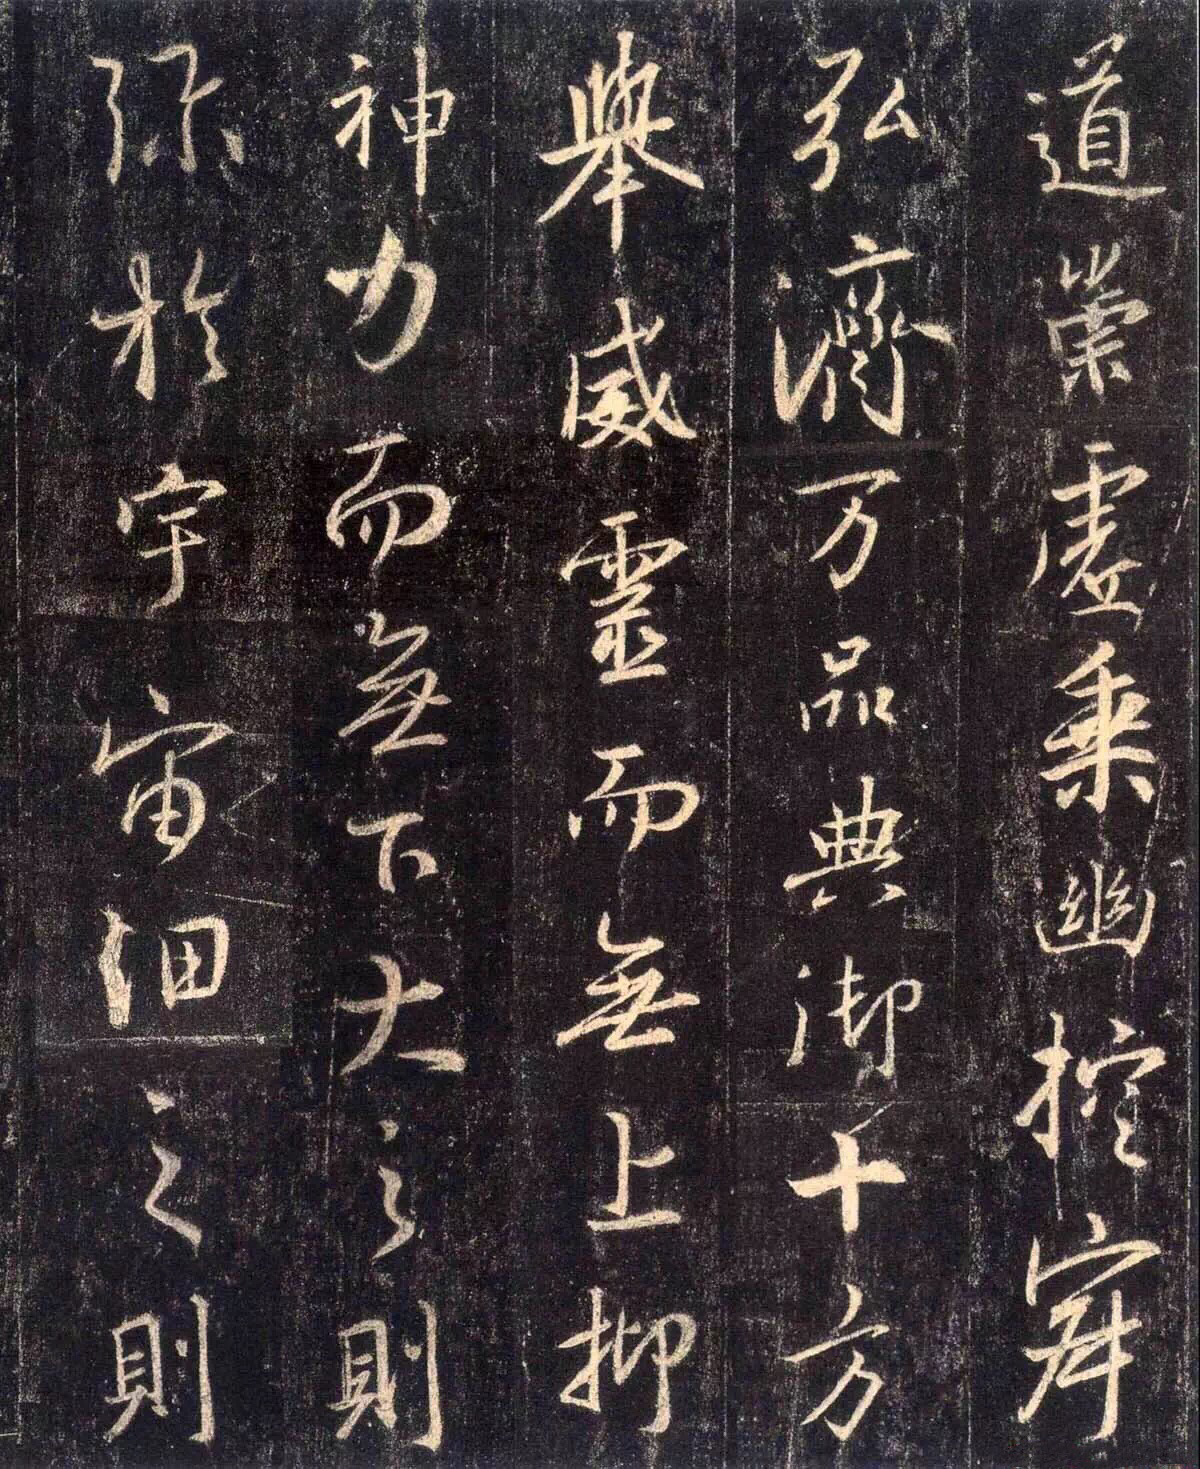 道崇虚乘幽控寂
弘濟万品典御十方
舉威靈而無上抑
神力而無下大之則
弥於宇宙细之則